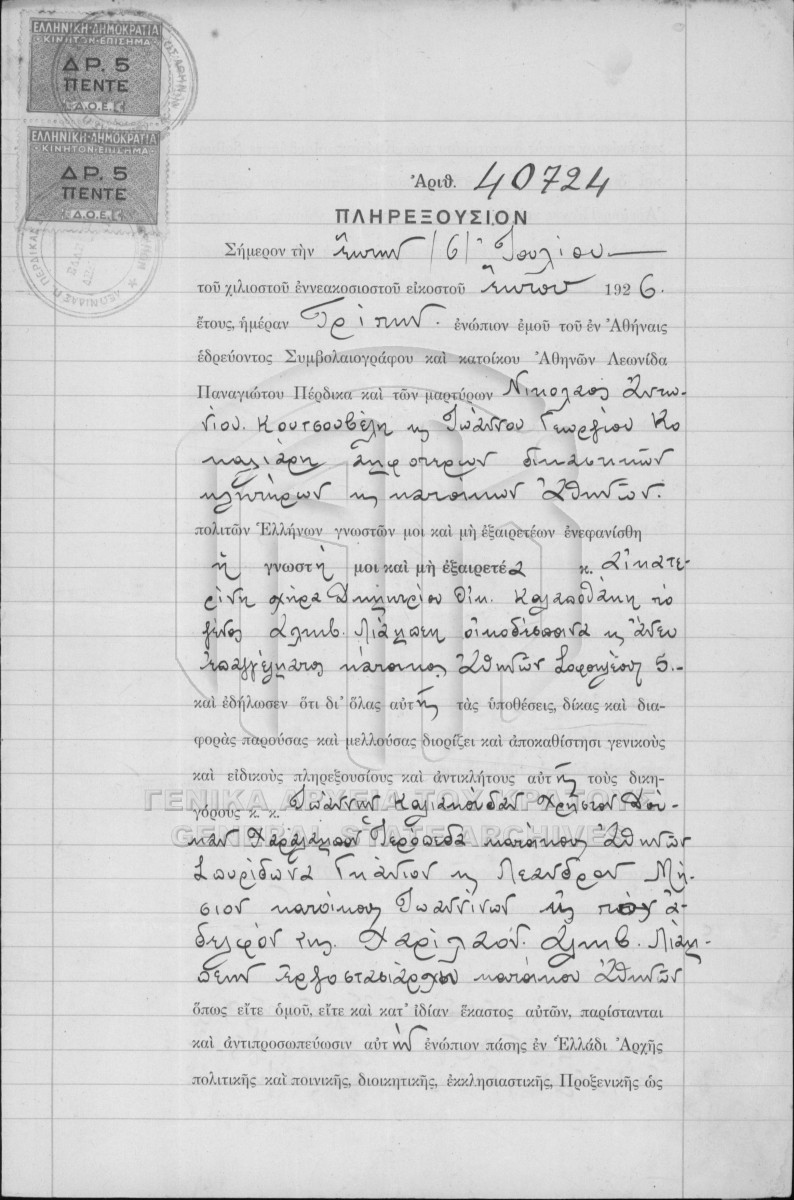 ΕΛΛΗΝΙΚΗ·ΔΗΜΟΚΡΑΤΙΑ
ΚΙΝΗΤΟΝ·ΕΠΙΣΗΜΑ
ΔΡ. 5
ΠΕΝΤΕ
Δ.Ο.Ε.
ΕΛΛΗΝΙΚΗ·ΔΗΜΟΚΡΑΤΙΑ
ΚΙΝΗΤΟΝ·ΕΠΙΣΗΜΑ
ΔΡ. 5
ΠΕΝΤΕ
Δ.Ο.Ε.
Ἀριθ. 40724
ΠΛΗΡΕΞΟΥΣΙΟΝ
Σήμερον τὴν ἕκτην /6/ Ἰουλίου
τοῦ χιλιοστοῦ ἐννεακοσιοστοῦ εἰκοστοῦ ἕκτου 1926.
ἔτους, ἡμέραν Τρίτην. ἐνώπιον ἐμοῦ τοῦ ἐν Ἀθήναις
ἑδρεύοντος Συμβολαιογράφου καὶ κατοίκου Ἀθηνῶν Λεωνίδα
Παναγιώτου Πέρδικα καὶ τῶν μαρτύρων Νικολάου Ἀντω-
νίου. Κουτσουβέλη κς Ἰωάννου Γεωργίου Κο
καλιάρη ἀμφοτέρων δικαστικῶν
κλητήρων κς κατοίκων Ἀθηνῶν.
πολιτῶν Ἑλλήνων γνωστῶν μοι καὶ μὴ ἐξαιρετέων ἐνεφανίσθη
ἡ γνωστὴ μοι καὶ μὴ ἐξαιρετέα κ. Αἰκατε-
ρίνη χήρα Δημητρίου Οἰκ. Καλαποθάκη τὸ
γένος Ἀλκιβ. Λιάμπεη οἰκοδέσποινα κς ἄνευ
ἐπαγγέλματος κάτοικος Ἀθηνῶν Σοφοκλέους 5.-
καὶ ἐδήλωσεν ὅτι δι' ὅλας αὐτῆς τὰς ὑποθέσεις, δίκας καὶ δια-
φορὰς παρούσας καὶ μελλούσας διορίζει καὶ ἀποκαθίστησι γενικοὺς
καὶ εἰδικοὺς πληρεξουσίους καὶ ἀντικλήτους αὐτῆς τοὺς δικη-
γόρους κ. κ. Ἰωάννην Χρῆστον Δού-
καν Χαράλαμπον κατοίκους Ἀθηνῶν
Σπυρίδωνα κς Λέανδρον
κατοίκους Ἰωαννίνων κς τὸν ἀ-
δελφόν της. Χαρίλαον. Ἀλκιβ. Λιάμ-
πεην ἐργοστασιάρχου κατοίκου Ἀθηνῶν
ὅπως εἴτε ὁμοῦ, εἴτε καὶ κατ' ἰδίαν ἕκαστος αὐτῶν, παρίστανται
καὶ ἀντιπροσωπεύωσιν αὐτὴν ἐνώπιον πάσης ἐν Ἑλλάδι Ἀρχῆς
πολιτικῆς καὶ ποινικῆς, διοικητικῆς, ἐκκλησιαστικῆς, Προξενικῆς ὡς
ΓΕΝΙΚΑ ΑΡΧΕΙΑ ΤΟΥ ΚΡΑΤΟΥΣ
GENERAL STATE ARCHIVES